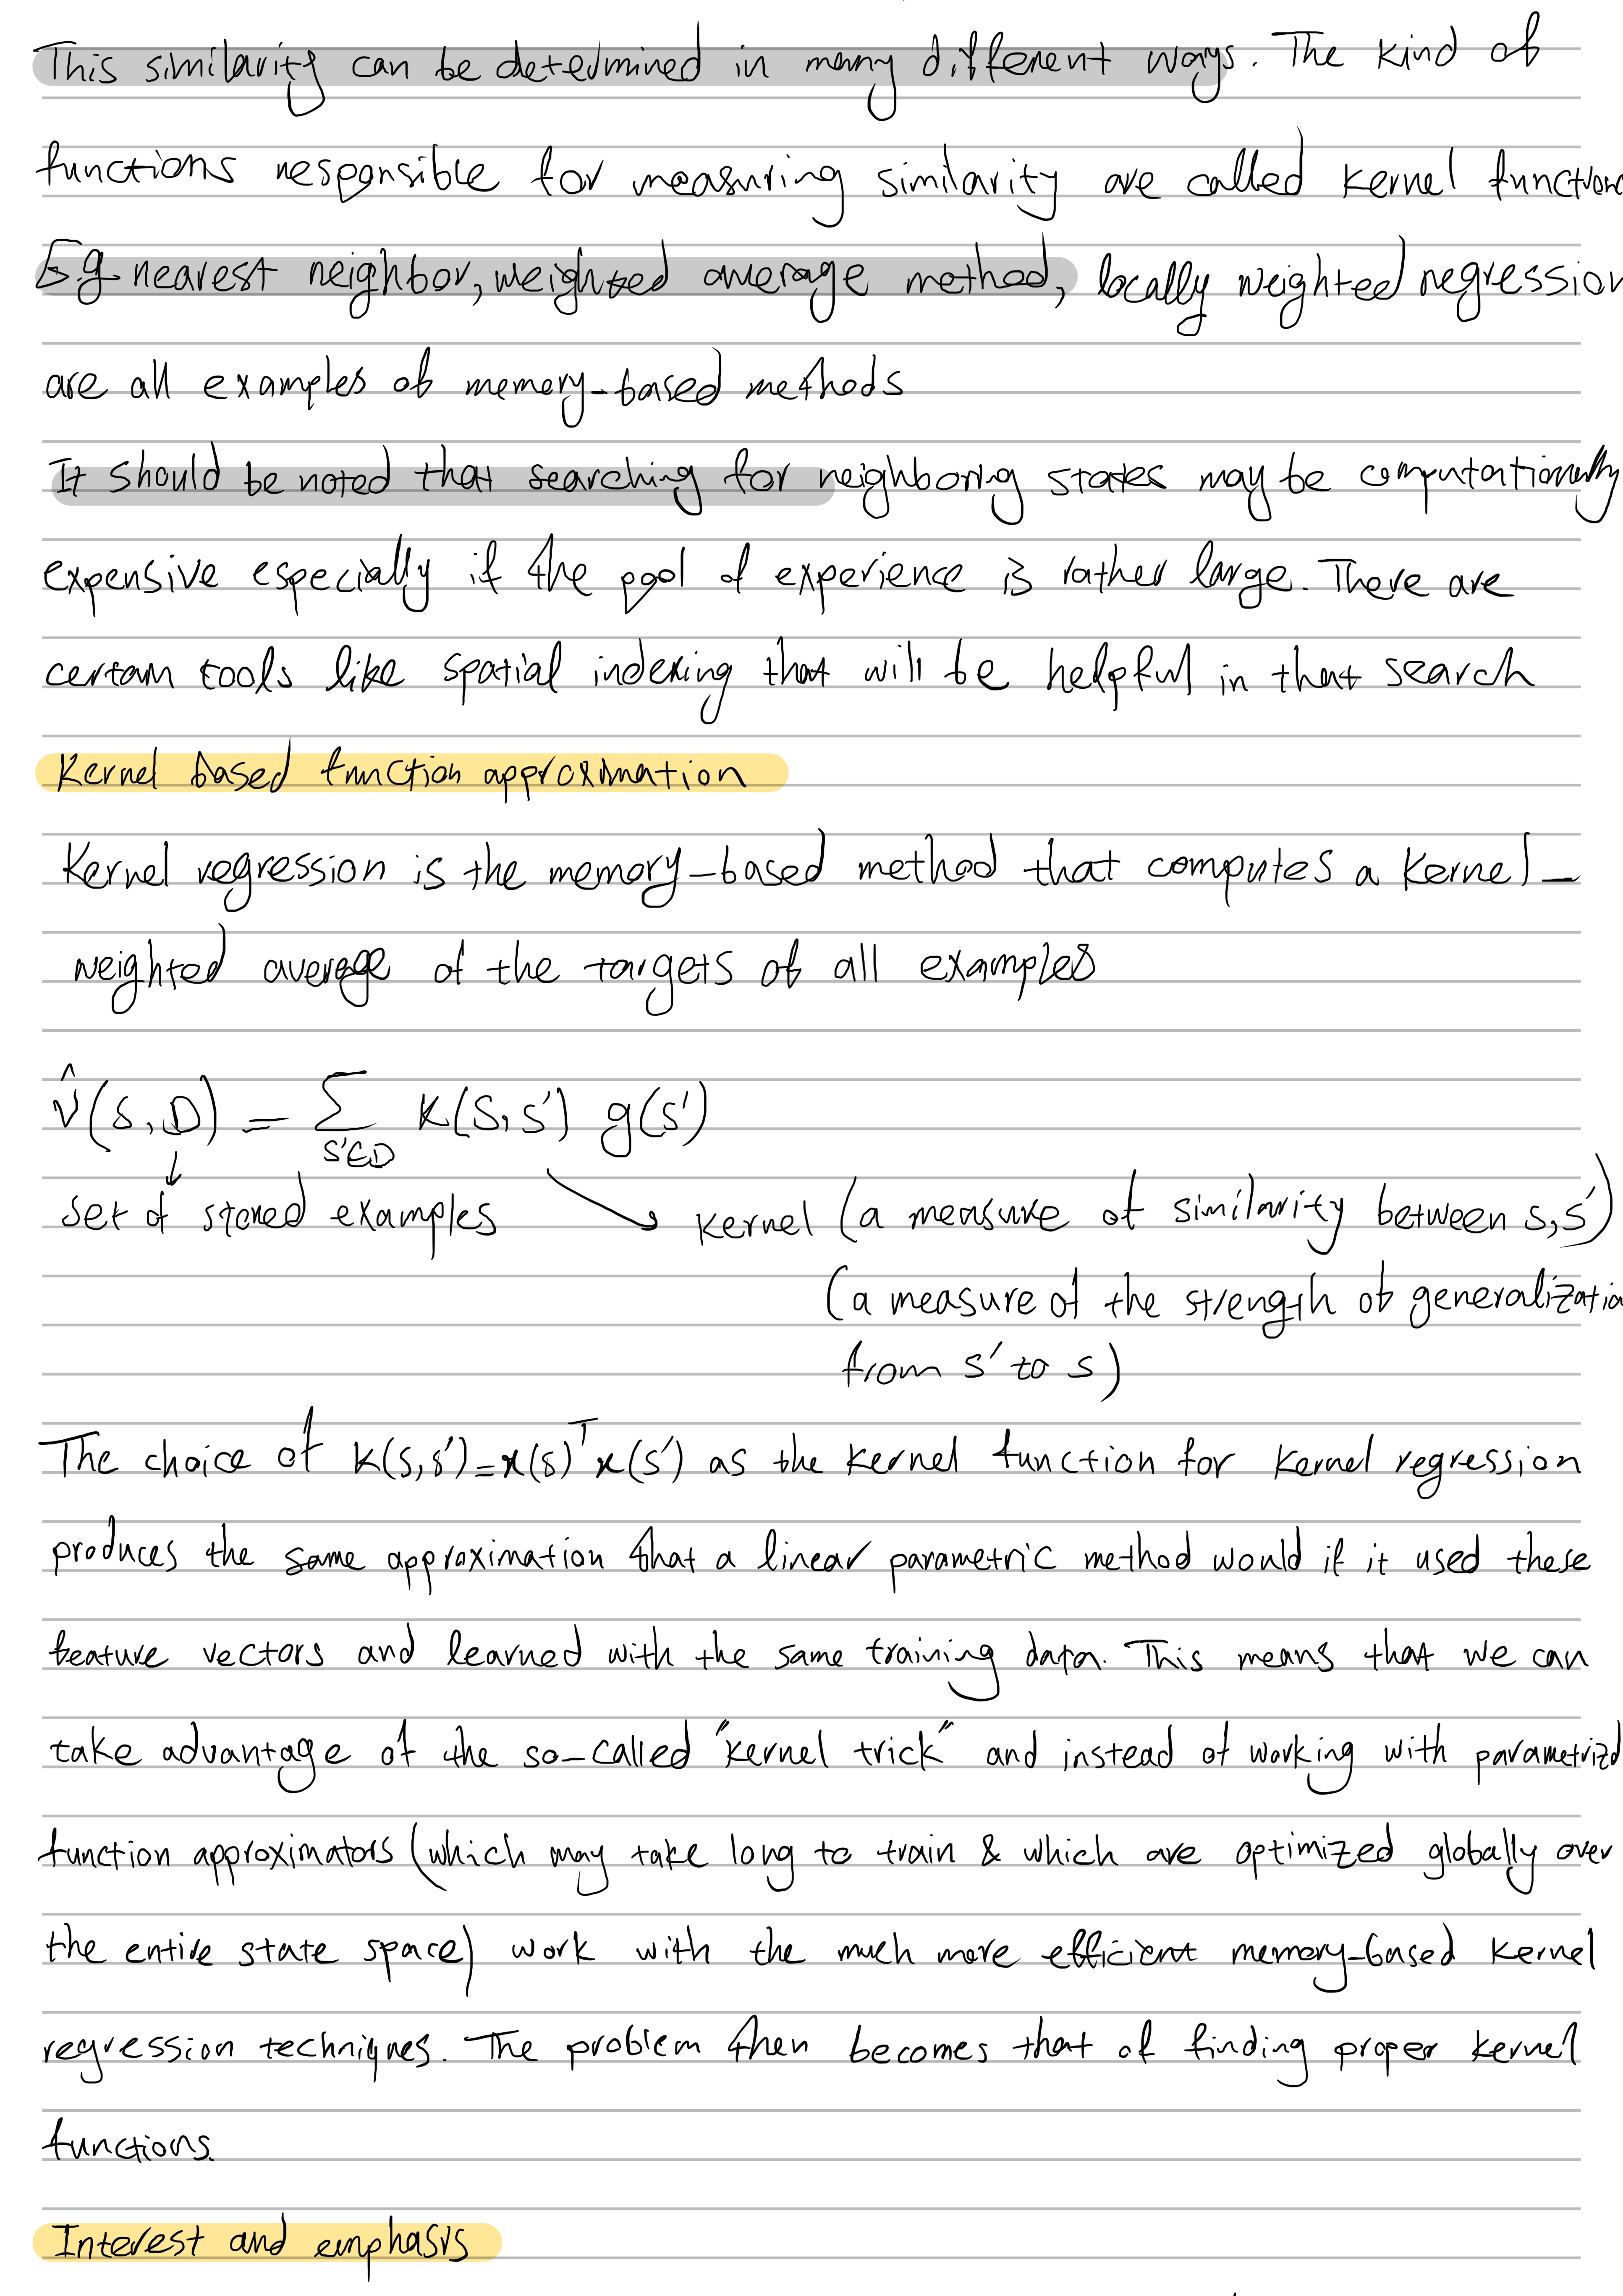 This similarity can be determined in many different ways. The kind of
functions responsible for measuring similarity are called kernel functions
E.g nearest neighbor, weighted average method, locally weighted regression
are all examples of memory-based methods
It should be noted that searching for neighboring states may be computationally
expensive especially if the pool of experience is rather large. There are
certain tools like spatial indexing that will be helpful in that search
Kernel based function approximation
Kernel regression is the memory-based method that computes a kernel-
weighted average of the targets of all examples
v̂(s,D) = Σ_{s'∈D} k(s,s') g(s')
set of stored examples → kernel (a measure of similarity between s,s')
(a measure of the strength of generalization
from s' to s)
The choice of k(s,s')=x(s)ᵀx(s') as the kernel function for kernel regression
produces the same approximation that a linear parametric method would if it used these
feature vectors and learned with the same training data. This means that we can
take advantage of the so-called "kernel trick" and instead of working with parametrizd
function approximators (which may take long to train & which are optimized globally over
the entire state space) work with the much more efficient memory-based kernel
regression techniques. The problem then becomes that of finding proper kernel
functions.
Interest and emphasis